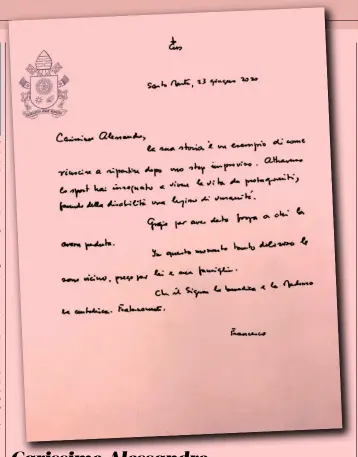 Santa Marta, 23 giugno 2020
Carissimo Alessandro,
la sua storia è un esempio di come
riuscire a ripartire dopo uno stop improvviso. Attraverso
lo sport hai insegnato a vivere la vita da protagonisti,
facendo della disabilità una lezione di umanità.
Grazie per aver dato forza a chi la
aveva perduta.
In questo momento tanto doloroso le
sono vicino, prego per lei e sua famiglia.
Che il Signore la benedica e la Madonna
la custodisca. Fraternamente,
Francesco
Carissimo Alessandro